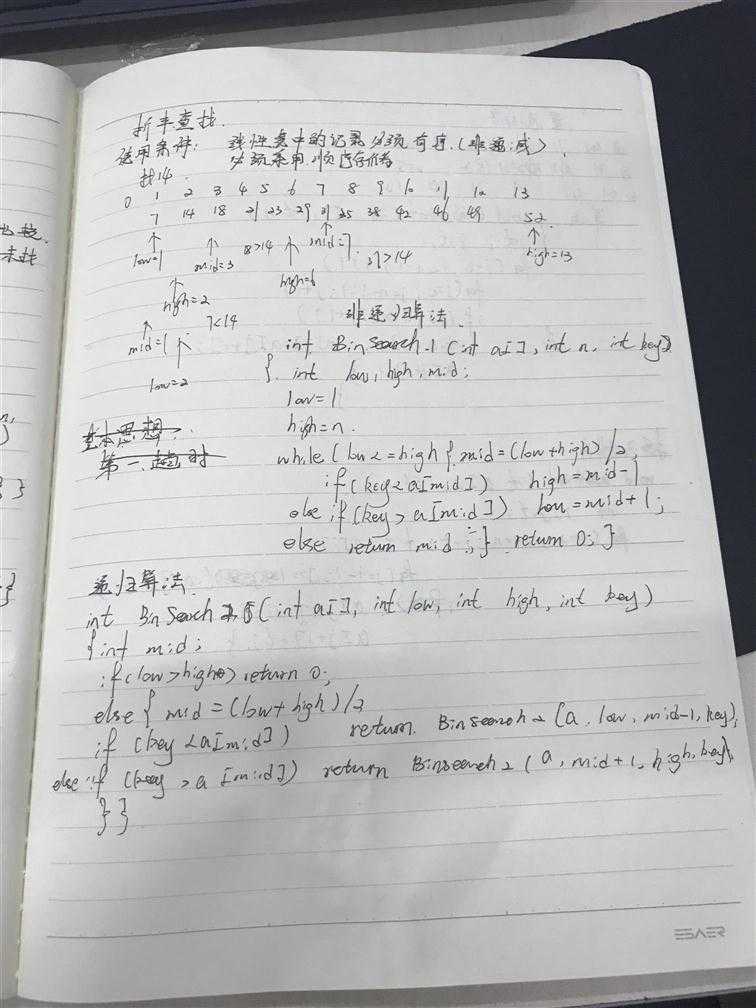 折半查找.
适用条件: 线性表中的记录必须有序.(非递减).
必须采用顺序存储
找14.
0 1 2 3 4 5 6 7 8 9 10 11 12 13
7 14 18 21 23 29 31 35 38 42 46 49 52
↑ ↑ 18>14 ↑ mid=7 31>14 ↑
low=1 mid=3 high=6 high=13
high=2
mid=1 7<14
low=2
非递归算法.
int BinSearch_1 (int a[], int n, int key)
{ int low, high, mid;
low=1
high=n.
基本思想.
第一趟时
while (low<=high { mid=(low+high)/2,
if(key<a[mid]) high=mid-1
else if(key>a[mid]) low=mid+1;
else return mid ;} return 0; }
递归算法.
int BinSearch 2 (int a[], int low, int high, int key)
{int mid;
if(low>high) return 0;
else { mid=(low+high)/2
if (key<a[mid]) return. Binsearch2 (a, low, mid-1, key);
else if (key>a[mid]) return Binsearch2 (a, mid+1, high, key),
} }
ESAER